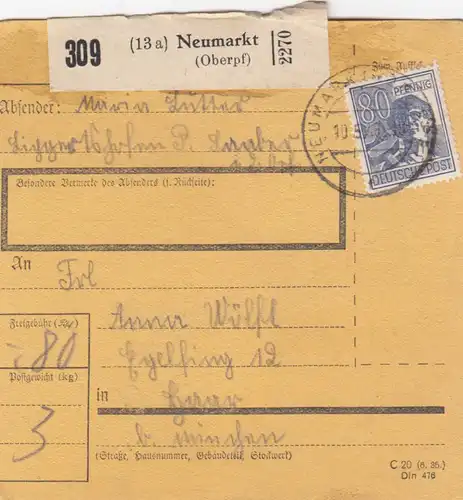 309
(13a) Neumarkt
(Oberpf)
2270
Absender: Maria Lutter
Liggertshofen P. Lauber
80 PFENNIG
NEUMARKT
DEUTSCHE POST
Besondere Vermerke des Absenders (s. Rückseite):
An
Frl
Anna Wölfl
Egelfing 12
in Haar
b. München
(Straße, Hausnummer, Gebäudeteil, Stockwerk)
Freigebühr (Rpf)
80
Postgewicht (kg)
3
C 20 (6. 35.)
Din 476